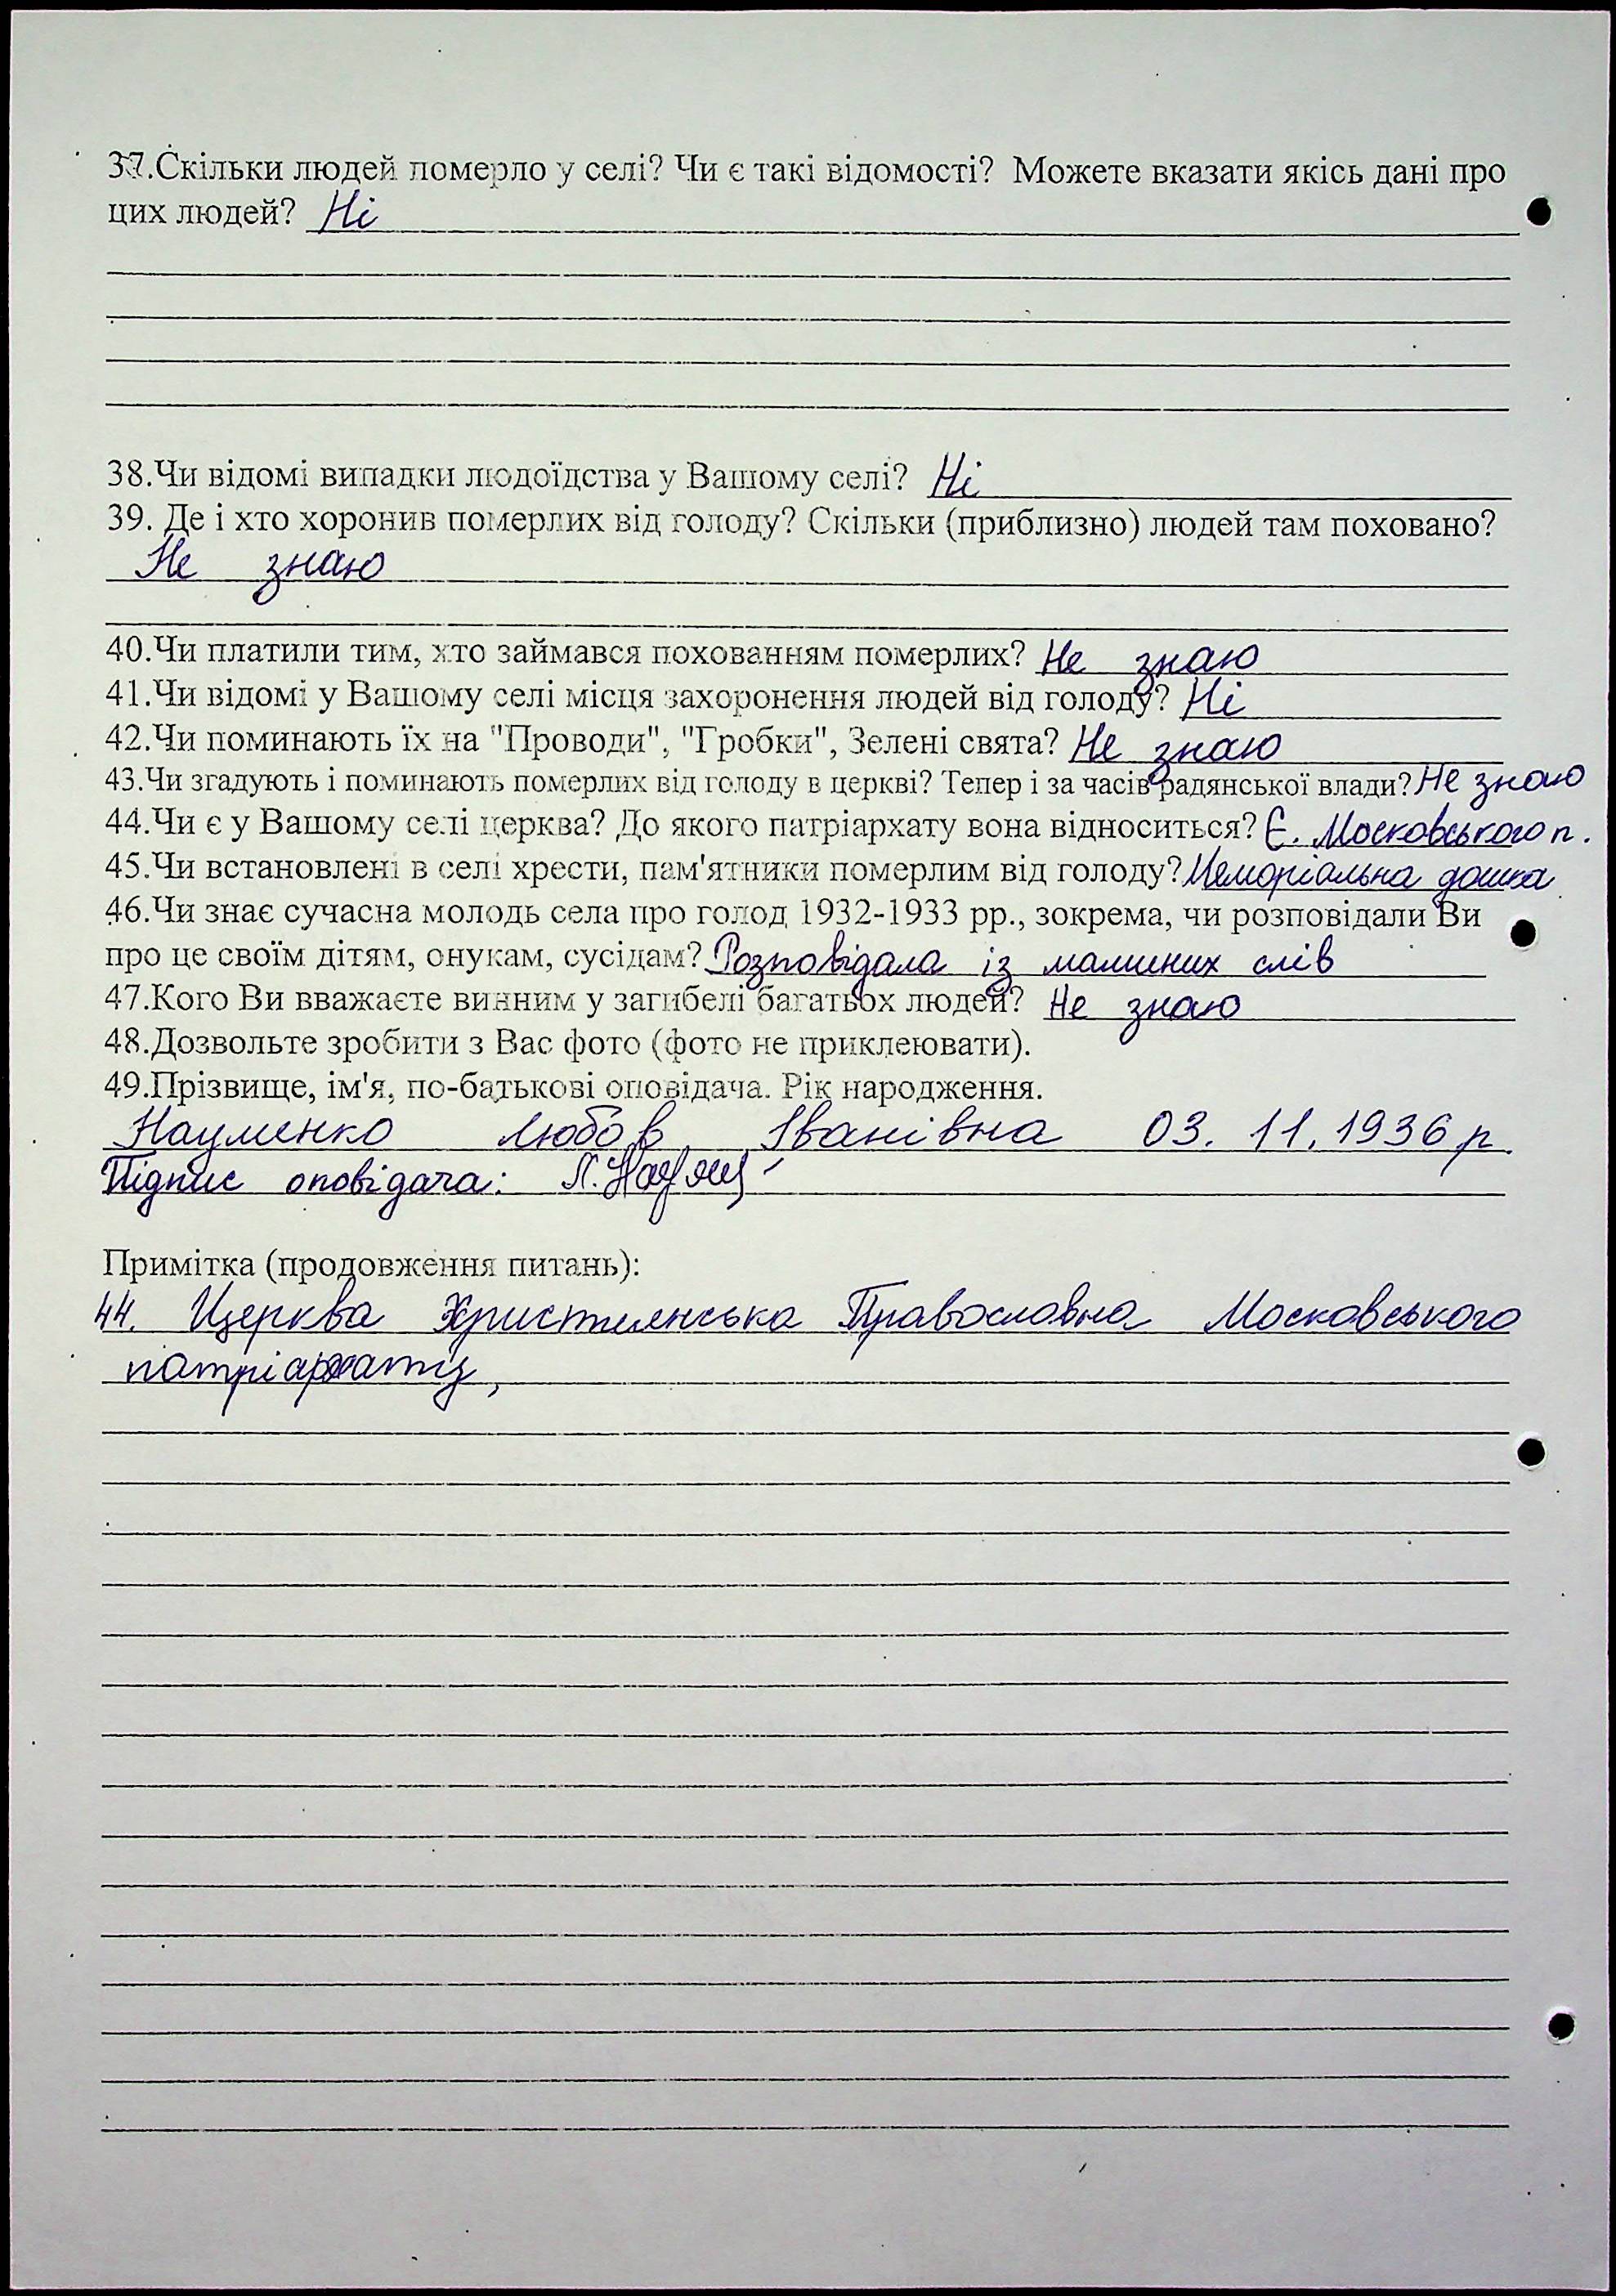 37.Скільки людей померло у селі? Чи є такі відомості? Можете вказати якісь дані про
цих людей? Ні
38.Чи відомі випадки людоїдства у Вашому селі? Ні
39. Де і хто хоронив померлих від голоду? Скільки (приблизно) людей там поховано?
Не знаю
40.Чи платили тим, хто займався похованням померлих? Не знаю
41.Чи відомі у Вашому селі місця захоронення людей від голоду? Ні
42.Чи поминають їх на "Проводи", "Гробки", Зелені свята? Не знаю
43.Чи згадують і поминають померлих від голоду в церкві? Тепер і за часів радянської влади? Не знаю
44.Чи є у Вашому селі церква? До якого патріархату вона відноситься? Є. Московського п.
45.Чи встановлені в селі хрести, пам'ятники померлим від голоду? Меморіальна дошка
46.Чи знає сучасна молодь села про голод 1932-1933 рр., зокрема, чи розповідали Ви
про це своїм дітям, онукам, сусідам? Розповідала із маминих слів
47.Кого Ви вважаєте винним у загибелі багатьох людей? Не знаю
48.Дозвольте зробити з Вас фото (фото не приклеювати).
49.Прізвище, ім'я, по-батькові оповідача. Рік народження.
Науменко Любов Іванівна 03. 11. 1936 р.
Підпис оповідача: Л. Наум
Примітка (продовження питань):
44. Церква Християнська Православна Московського
патріархату,